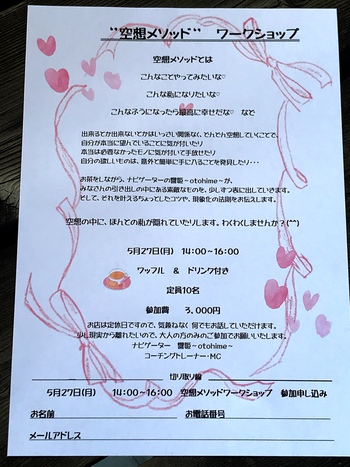 "空想メソッド" ワークショップ
空想メソッドとは
こんなことやってみたいな♡
こんな私になりたいな♡
こんなふうになったら最高に幸せだな♡ など
出来るとか出来ないとかはいっさい関係なく、どんどん空想していくことで、
自分が本当に望んでいることに気が付いたり
本当は必要なかったモノに気がついて手放せたり
自分の欲しいものは、意外と簡単に手に入ることを発見したり・・・
お茶をしながら、ナビゲーターの響姫～otohime～が、
みなさんの引き出しの中にある素敵なものを、少しずつ表に出していきます。
そして、それを叶えるちょっとしたコツや、現象化の法則をお伝えします。
空想の中に、ほんとの私が隠れていたりします。わくわくしませんか？(^^)
5月27日(月) 14:00～16:00
ワッフル & ドリンク付き
定員10名
参加費 3,000円
お店は定休日ですので、気兼ねなく何でもお話していただけます。
少し現実から離れたいので、大人の方のみのご参加でお願いいたします。
ナビゲーター 響姫～otohime～
コーチングトレーナー・MC
切り取り線
5月27日(月) 14:00～16:00 空想メソッドワークショップ 参加申し込み
お名前 お電話番号
メールアドレス